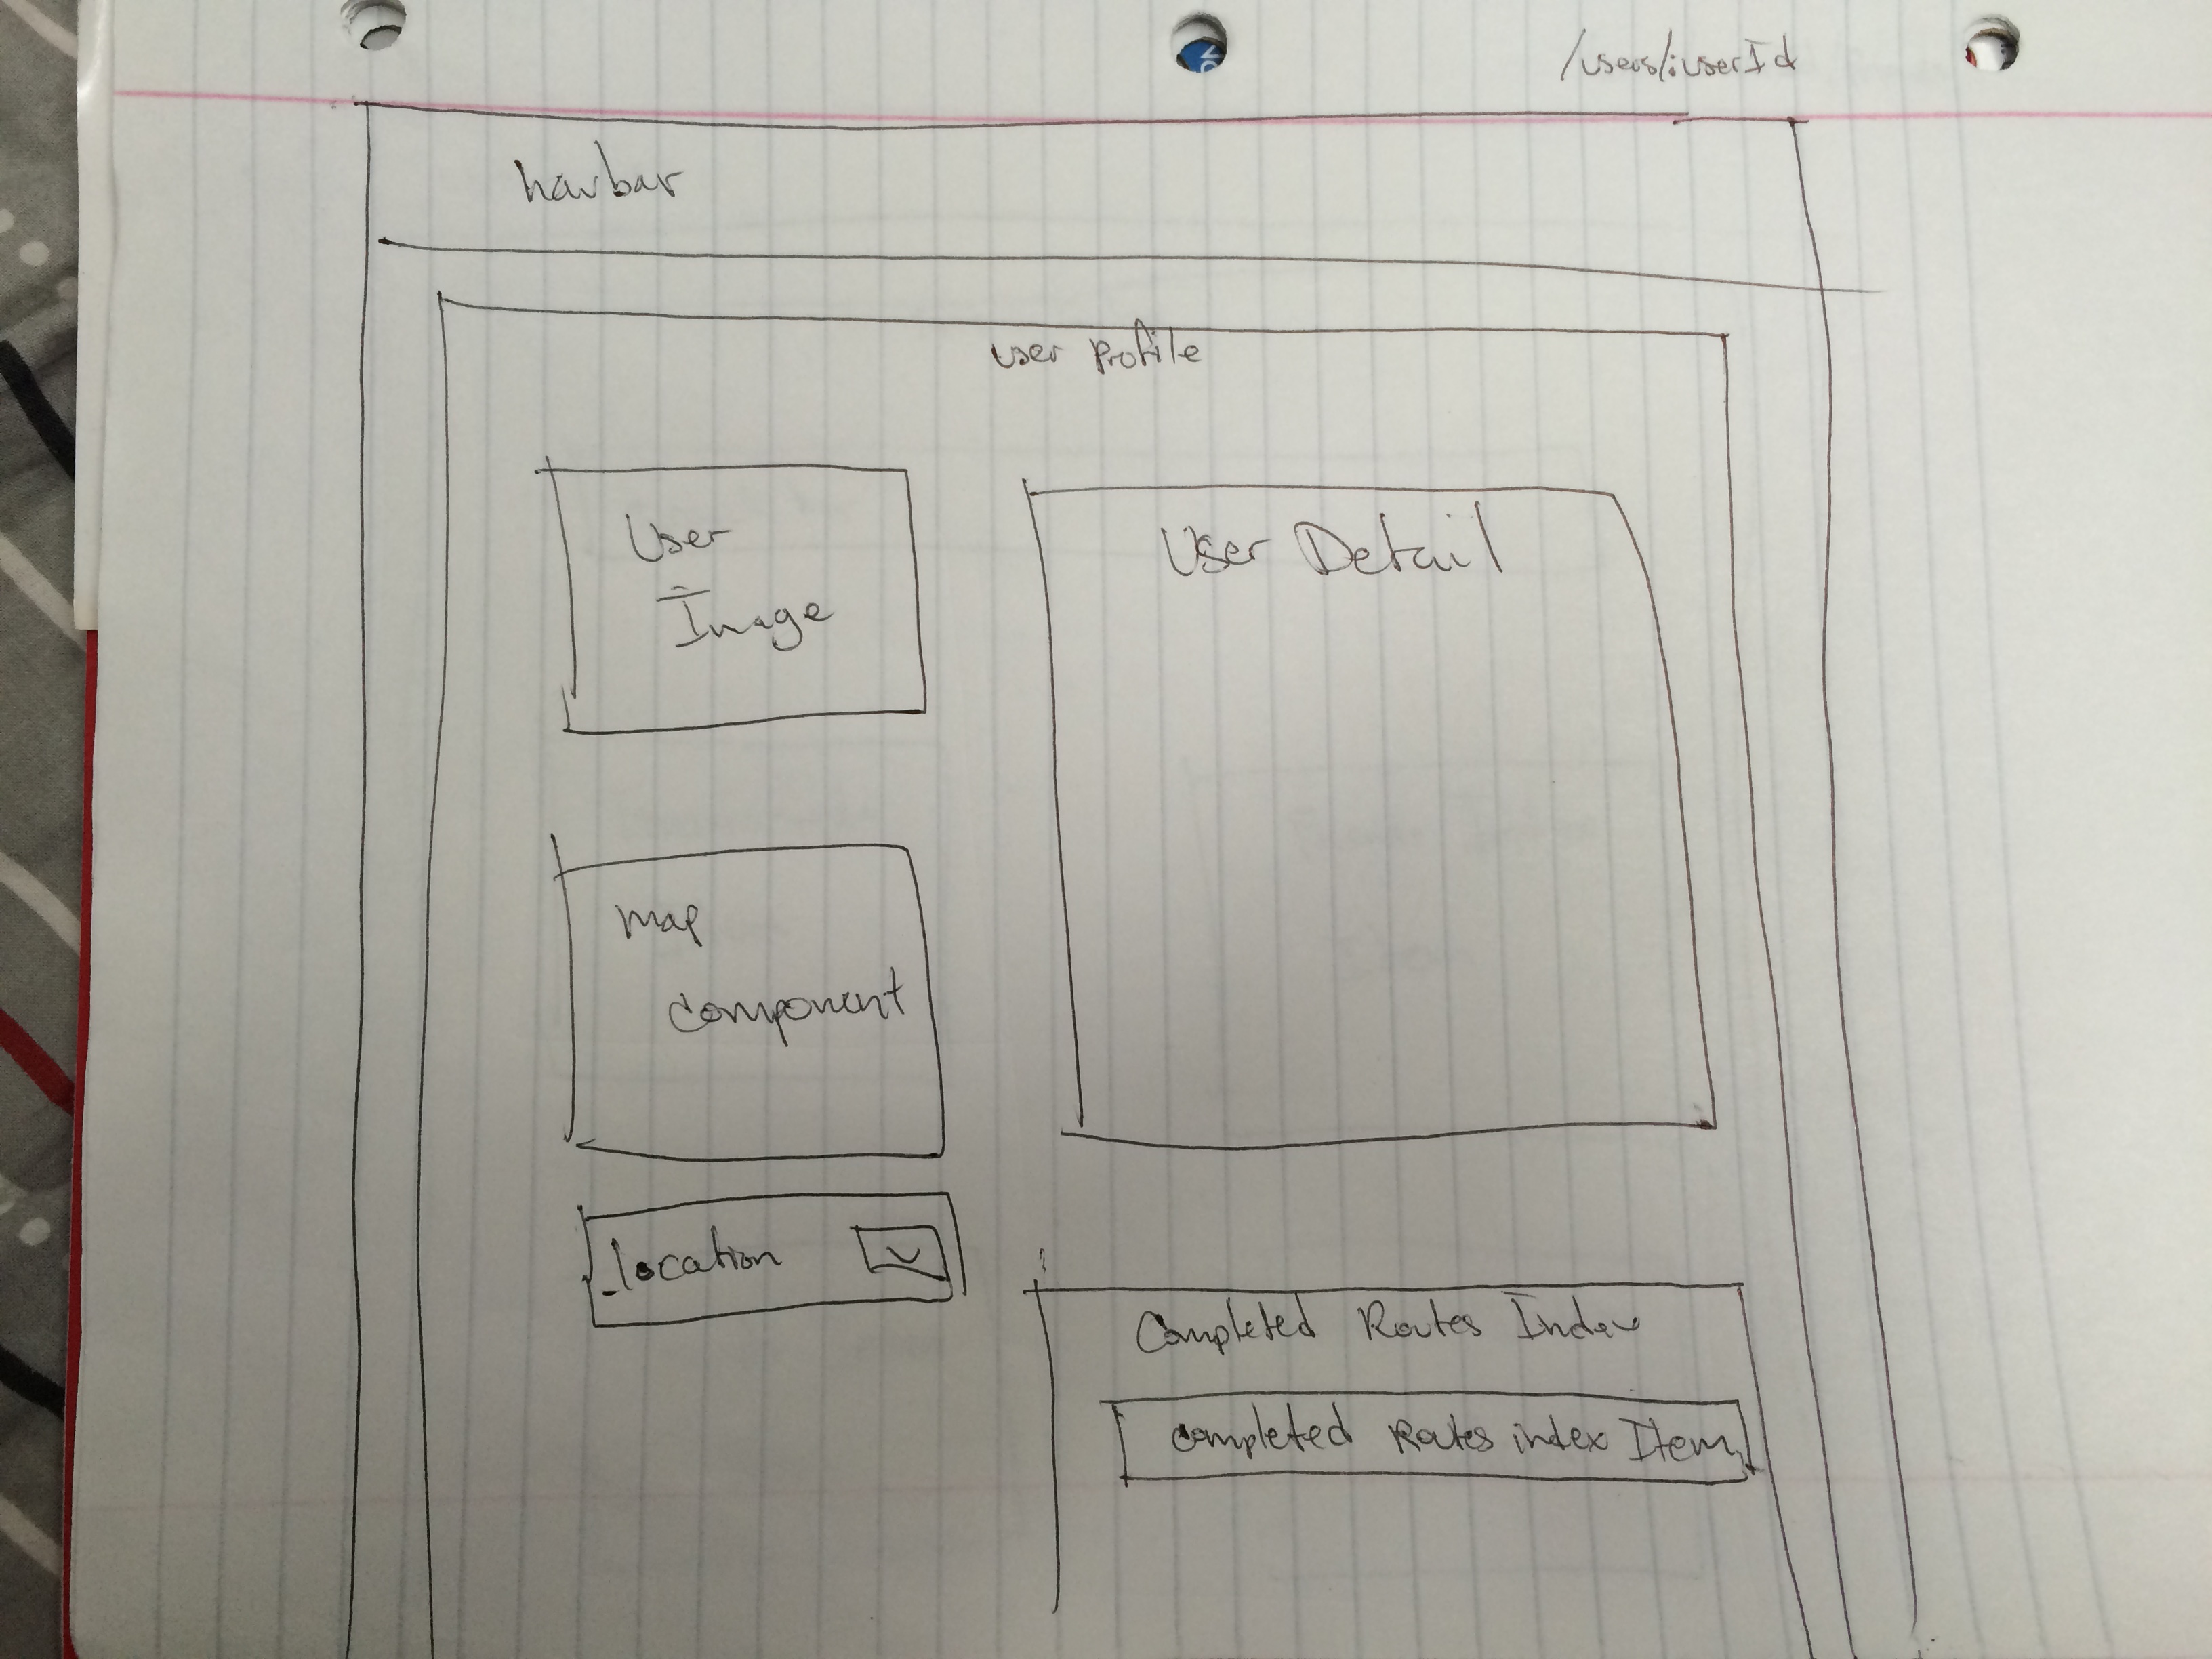 /users/:userId
navbar
user profile
User
Image
User Detail
map
component
location
Completed Routes Index
completed routes index Item